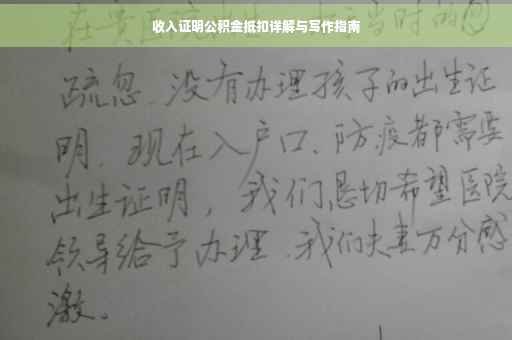 收入证明公积金抵扣详解与写作指南
当时的
疏忽、没有办理孩子的出生证
明、现在入户口、防疫都需要
出生证明，我们恳切希望医院
领导给予办理、我们夫妻万分感
激。